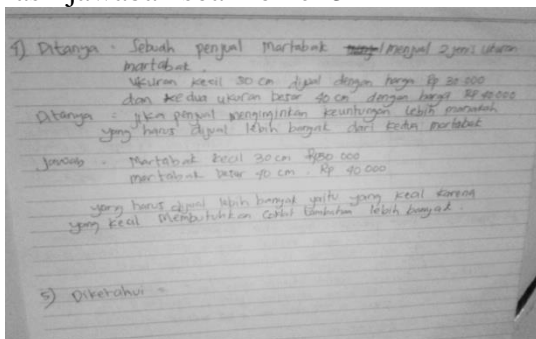 4) Ditanya : Sebuah penjual Martabak menjual 2 jenis ukuran
martabak.
ukuran kecil 30 cm dijual dengan harga Rp 30 000
dan kedua ukuran besar 40 cm dengan harga Rp 40.000
Ditanya = jika penjual menginginkan keuntungan lebih
yang harus dijual lebih banyak dari kedua martabak
Jawab : Martabak kecil 30 cm Rp 30 000
martabak besar 40 cm. Rp 40 000
yang harus dijual lebih banyak yaitu yang kecil karena
yang kecil Membutuhkan lebih banyak.
5) Diketahui =